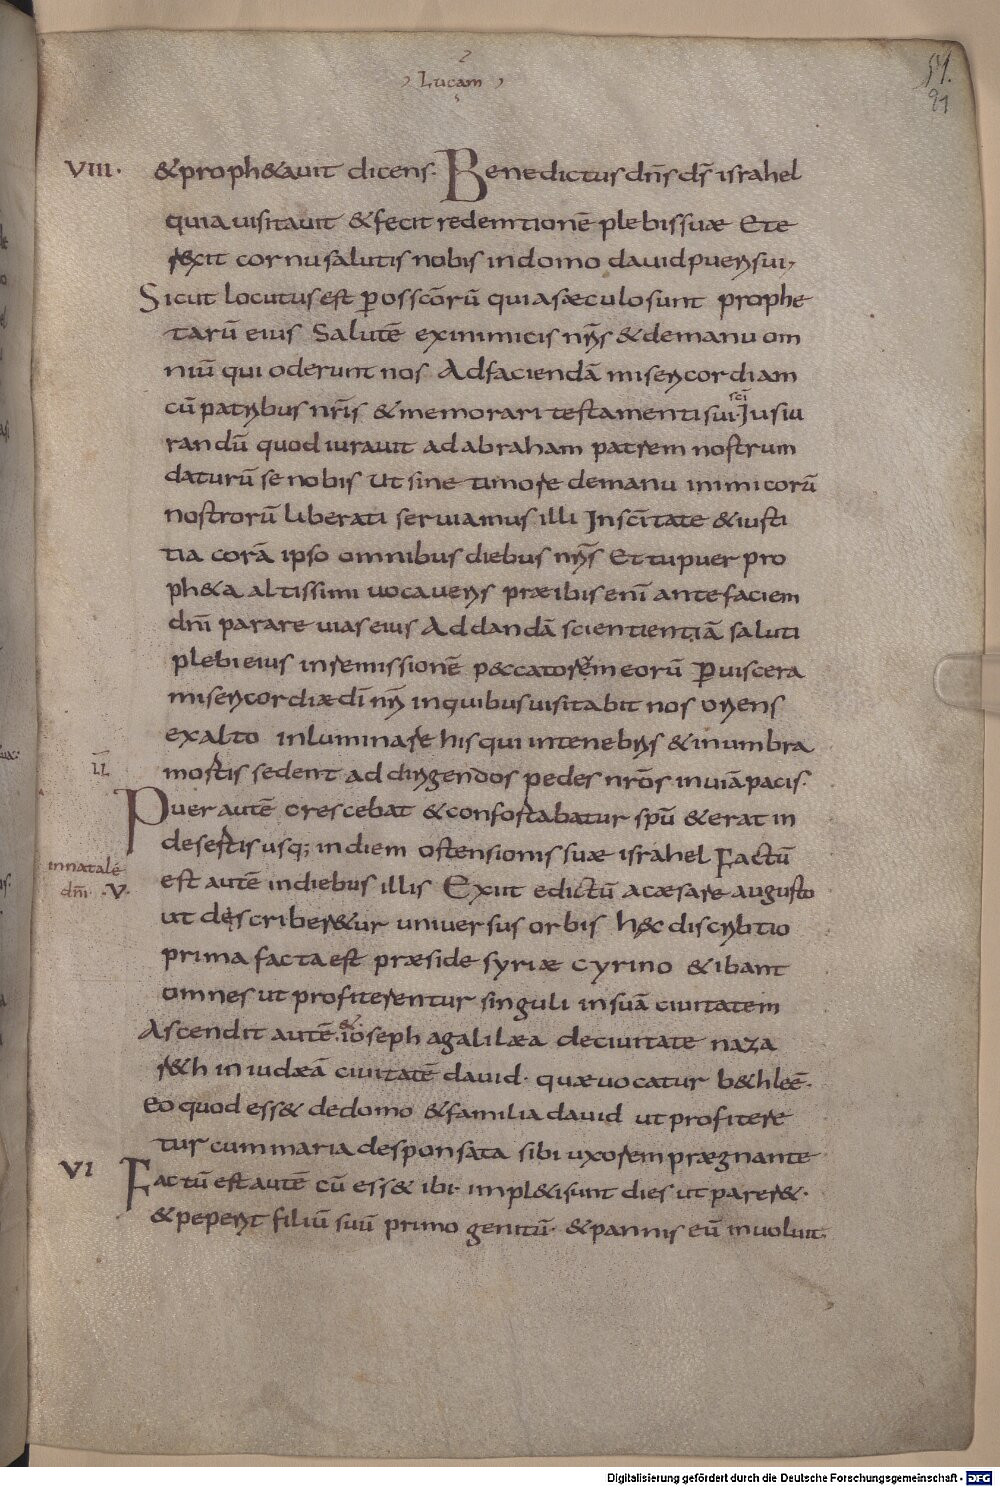 Lucam
51.
91
VIII. & proph&auit dicens. Benedictus dn̄s ds̄ israhel
quia uisitauit & fecit redemtionē plebis suae Et e
rexit cornu salutis nobis in domo dauid pueri sui,
Sicut locutus est ꝑ os scōrū qui a saeculo sunt prophe
tarū eius Salutē ex inimicis nr̄is & de manu om
niū qui oderunt nos Ad faciendā misericordiam
cū patribus nr̄is & memorari testamenti sui sci Iusiu
randū quod iurauit ad abraham patrem nostrum
daturū se nobis Ut sine timore de manu inimicorū
nostrorū liberati seruiamus illi In scītate & iusti
tia corā ipso omnibus diebus nr̄is Et tu puer pro
ph&a altissimi uocaueris praeibis enī ante faciem
dn̄i parare uias eius Ad dandā scientientiā saluti
plebi eius in remissionē p&ccatorem eorū ꝑ uiscera
misericordiae dī nr̄i in quibus uisitabit nos oriens
ex alto inluminare his qui in tenebris & in umbra
II mortis sedent ad dirigendos pedes nrōs in uiā pacis.
Puer autē crescebat & confortabatur spū & erat in
desertis usq; in diem ostensionis suae israhel Factū
in natale
dn̄i. V. est autē in diebus illis Exiit edictū a caesare augusto
ut describer&ur uniuersus orbis h&c discribtio
prima facta est praeside syriae cyrino & ibant
omnes ut profiterentur singuli in suā ciuitatem
Ascendit autē & ioseph a galilaea de ciuitate naza
r&h in iudaeā ciuitatē dauid. quae uocatur b&hleē.
Eo quod ess& de domo & familia dauid ut profitere
tur cum maria desponsata sibi uxorem praegnante
VI Factū est autē cū ess& ibi. impl&i sunt dies ut parer&.
& peperit filiū suū primogenitū. & pannis eū inuoluit.
Digitalisierung gefördert durch die Deutsche Forschungsgemeinschaft - DFG